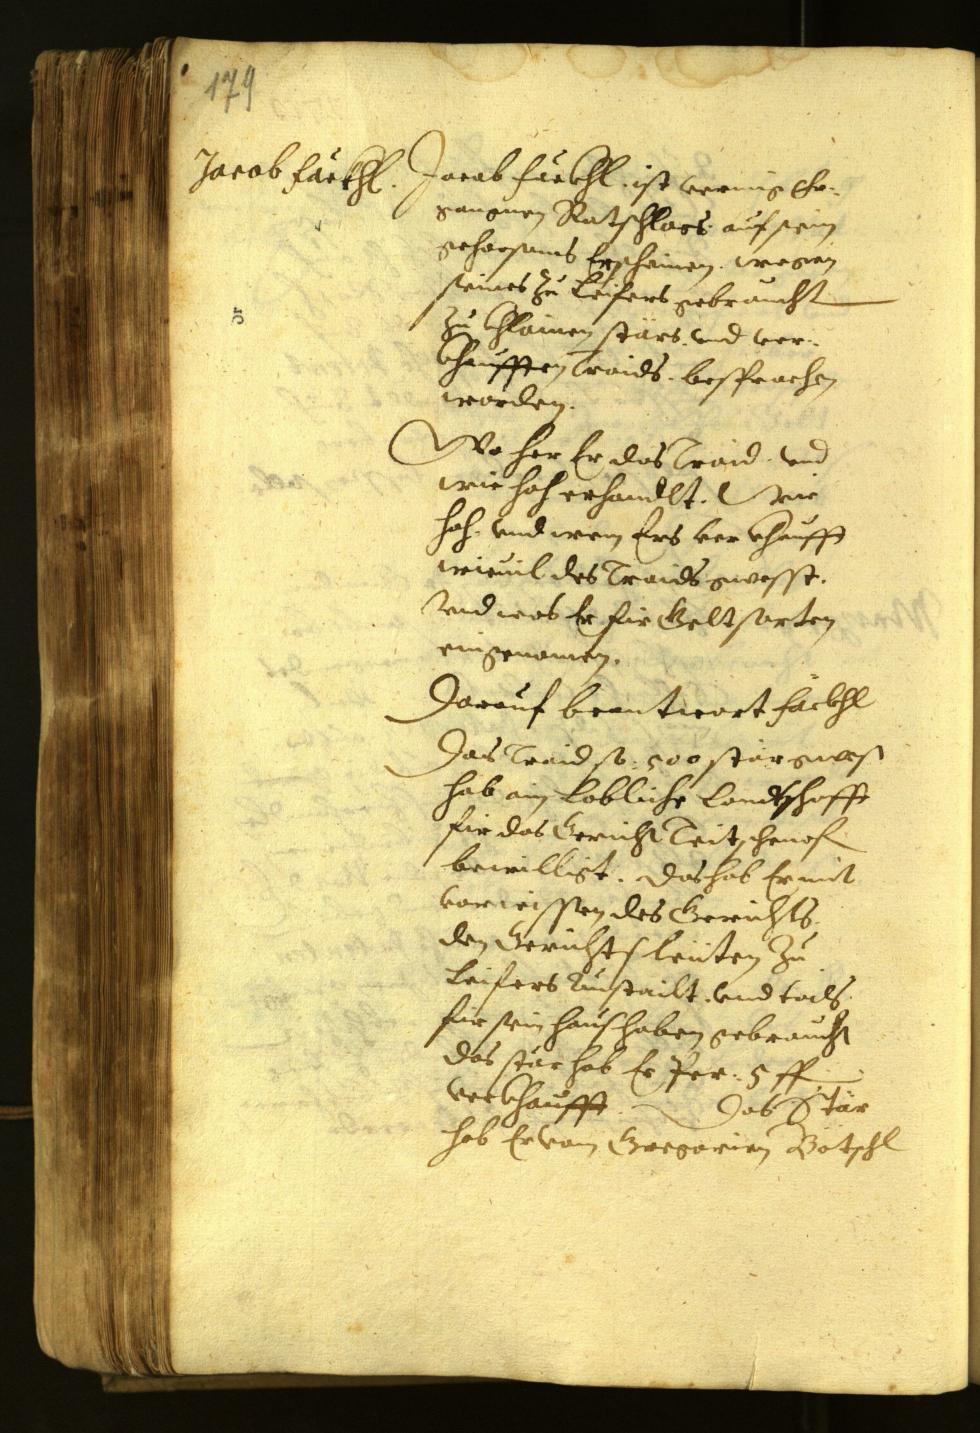 179
Jacob Fäckhl.
Jacob Fäckhl. ist vermüg Er-
gangnen Ratschlags. auf sein
gehorsams Erscheinen. wegen
seines zu Leifers gebraucht
zu khlainen stärs. vnd ver-
khaufften Traids. besprochen
worden.
Wo her Er das Traid. vnd
wie hoh erhandlt. Wie
hoh. vnd wem Ers verkhaufft
wieuil des Traids gwesst.
Vnd was Er für Geltsorten
eingenomen.
Darauf beantwort Fäckhl
Das Traid so. 500 stär gwest
hab ain Lobliche Landtschafft
für das Gericht Teitschenof.
bewilligt. Das hab Er mit
vorwissen des Gerichts.
den Gerichtsleüten zu
Leifers Austailt. vnd tails.
für sein Haushaben gebraucht
das stär hab Er Per. 5 ff.
verkhaufft. Das Stär
hab Er vom Gregorien Bötschl